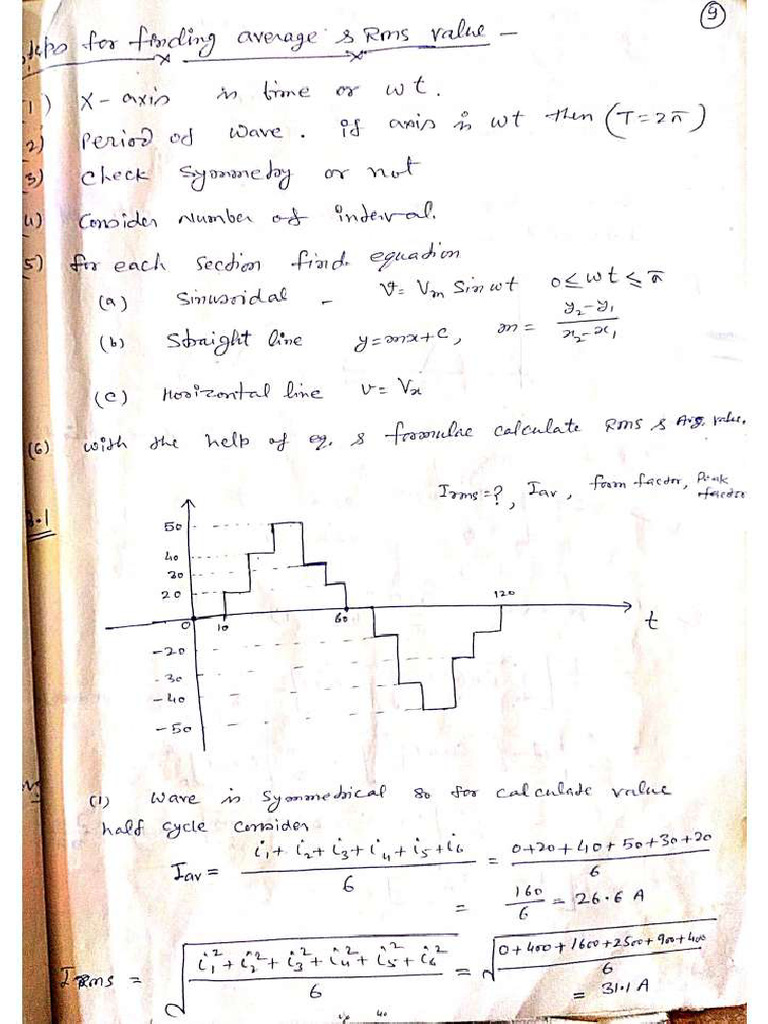 9
for finding average & Rms value -
1) X-axis is time or wt.
2) Period of wave. if axis is wt then (T=2π)
3) Check Symmetry or not
4) Consider Number of interval.
5) for each section find equation
(a) Sinusoidal - v = Vm Sinwt 0≤wt≤π
(b) Straight line y=mx+c, m = y₂-y₁ / x₂-x₁
(c) Horizontal line v= Vx
(6) with the help of eq. & formulae calculate Rms & Avg. value.
Irms=?, Iav, form factor, Peak factor
50
40
30
20
0 10 60 120 t
-20
-30
-40
-50
(1) Wave is Symmetrical so for calculate value
half cycle consider
Iav = i₁+i₂+i₃+i₄+i₅+i₆ / 6 = 0+20+40+50+30+20 / 6
= 160/6 = 26.6 A
Irms = √(i₁²+i₂²+i₃²+i₄²+i₅²+i₆² / 6) = √(0+400+1600+2500+900+400 / 6)
= 31.1 A